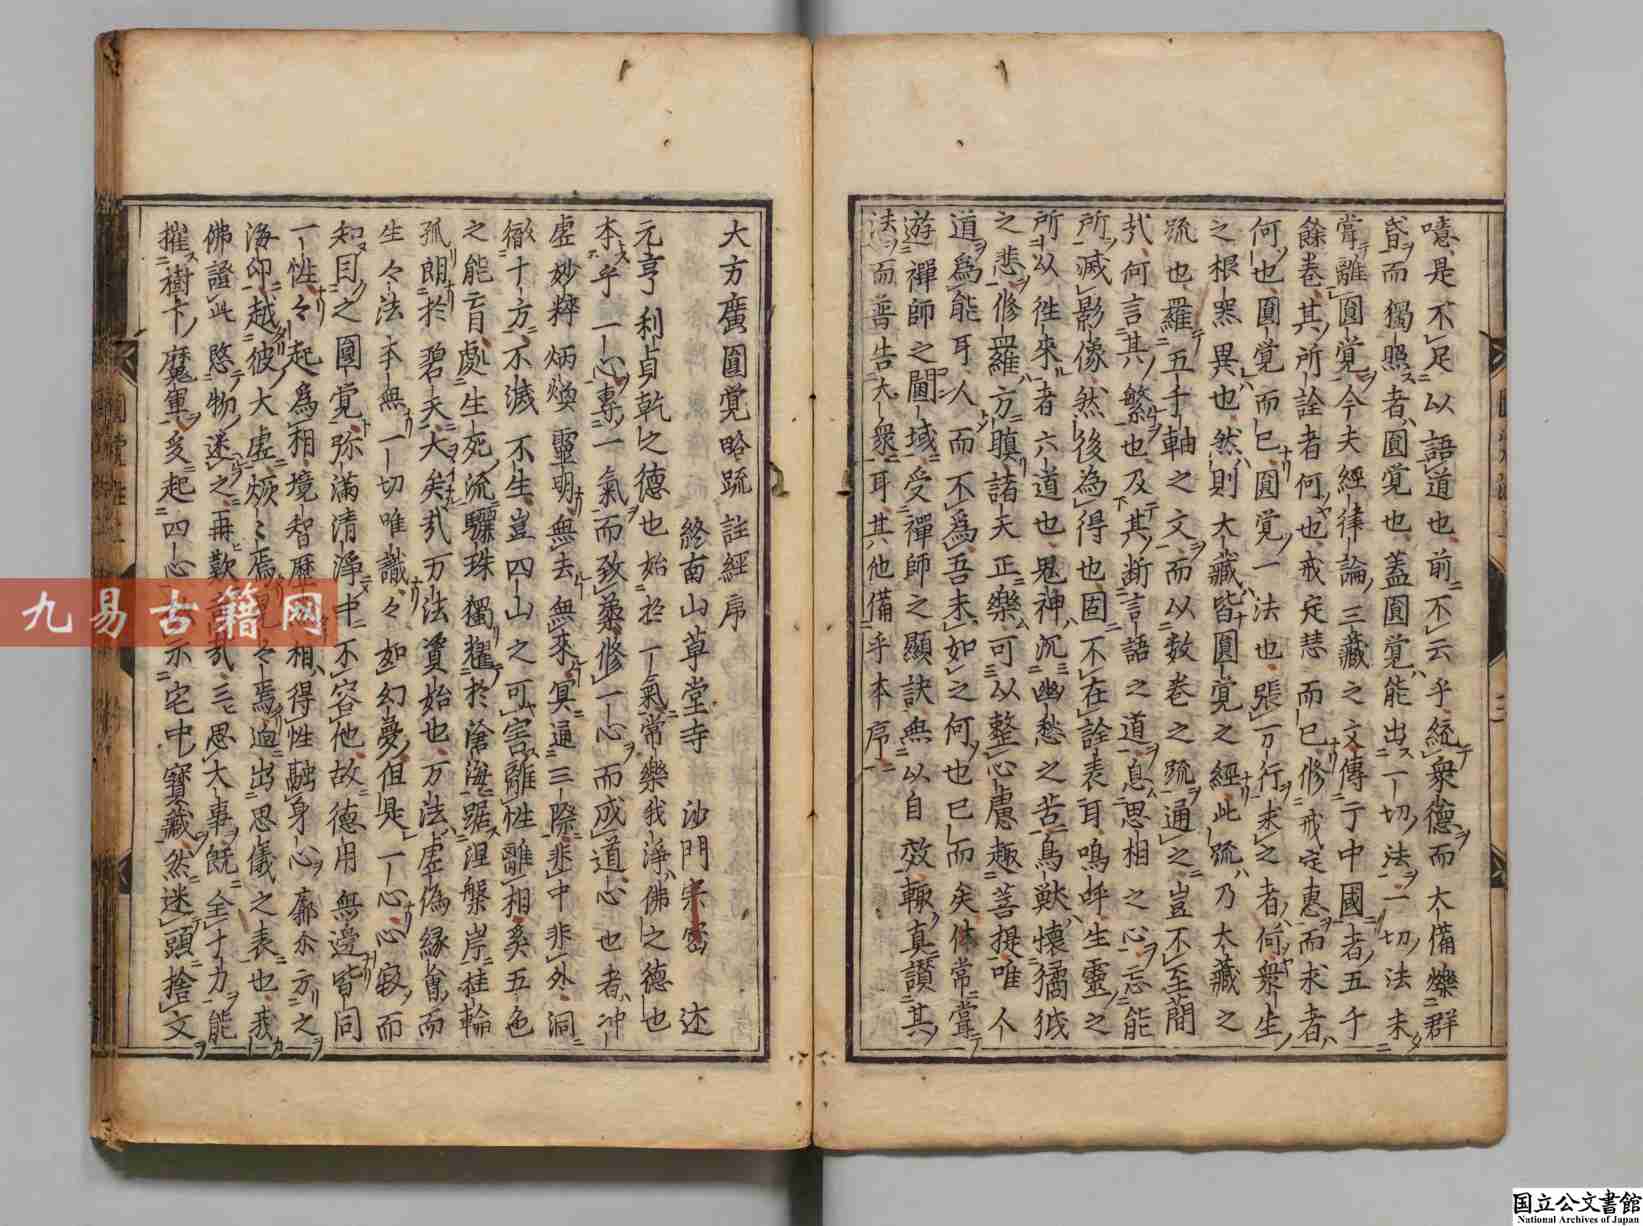 噫是不足以語道也前不云乎統衆德而大備爍群
昏而獨照者圓覺也蓋圓覺能出一切法一切法未
甞離圓覺今夫經律論三藏之文傳于中國者五千
餘卷其所詮者何也戒定慧而已修戒定惠而求者
何也圓覺而已圓覺一法也張万行求之者何衆生
之根噐異也然則大藏皆圓覺之經此疏乃大藏之
疏也羅五千軸之文而以数巻之疏通之豈不至蕳
㢤何言其繁也及其断言語之道息思相之心忘能
所滅影像然後為得也固不在詮表耳嗚呼生靈之
所以徃來者六道也鬼神沉幽愁之苦鳥獣懷獝狘
之悲修羅方瞋諸天正樂可以整心慮趣菩提唯人
道為能耳人而不為吾末如之何也已而矣休常甞
遊禪師之閫域受禪師之顯訣無以自效輙真讃其
法而普告大衆耳其他備乎本序
大方廣圓覺略疏註經序
終南山草堂寺沙門宗密述
元亨利貞乾之德也始於一氣常樂我淨佛之德也
本乎一心專一氣而致柔修一心而成道心也者冲
虚妙粹炳煥靈明無去無來冥通三際非中非外洞
徹十方不滅不生豈四山之可害離性離相奚五色
之能盲處生死流驪珠獨耀於滄海踞涅槃岸桂輪
孤朗於碧天大矣㢤万法資始也万法虚偽縁會而
生々法本無一切唯識々如幻夢但是一心心寂而
知目之圓覺弥滿清淨中不容他故德用無邊皆同
一性々起為相境智歴然相得性融身心廓尒方之
海印越彼大虚恢々焉晃々焉逈出思議之表也我
佛證此愍物迷之再歎奇㢤三思大事既全十力能
摧樹下魔軍爰起四心示宅中寳藏然迷頭捨父
九易古籍网
国立公文書館
National Archives of Japan